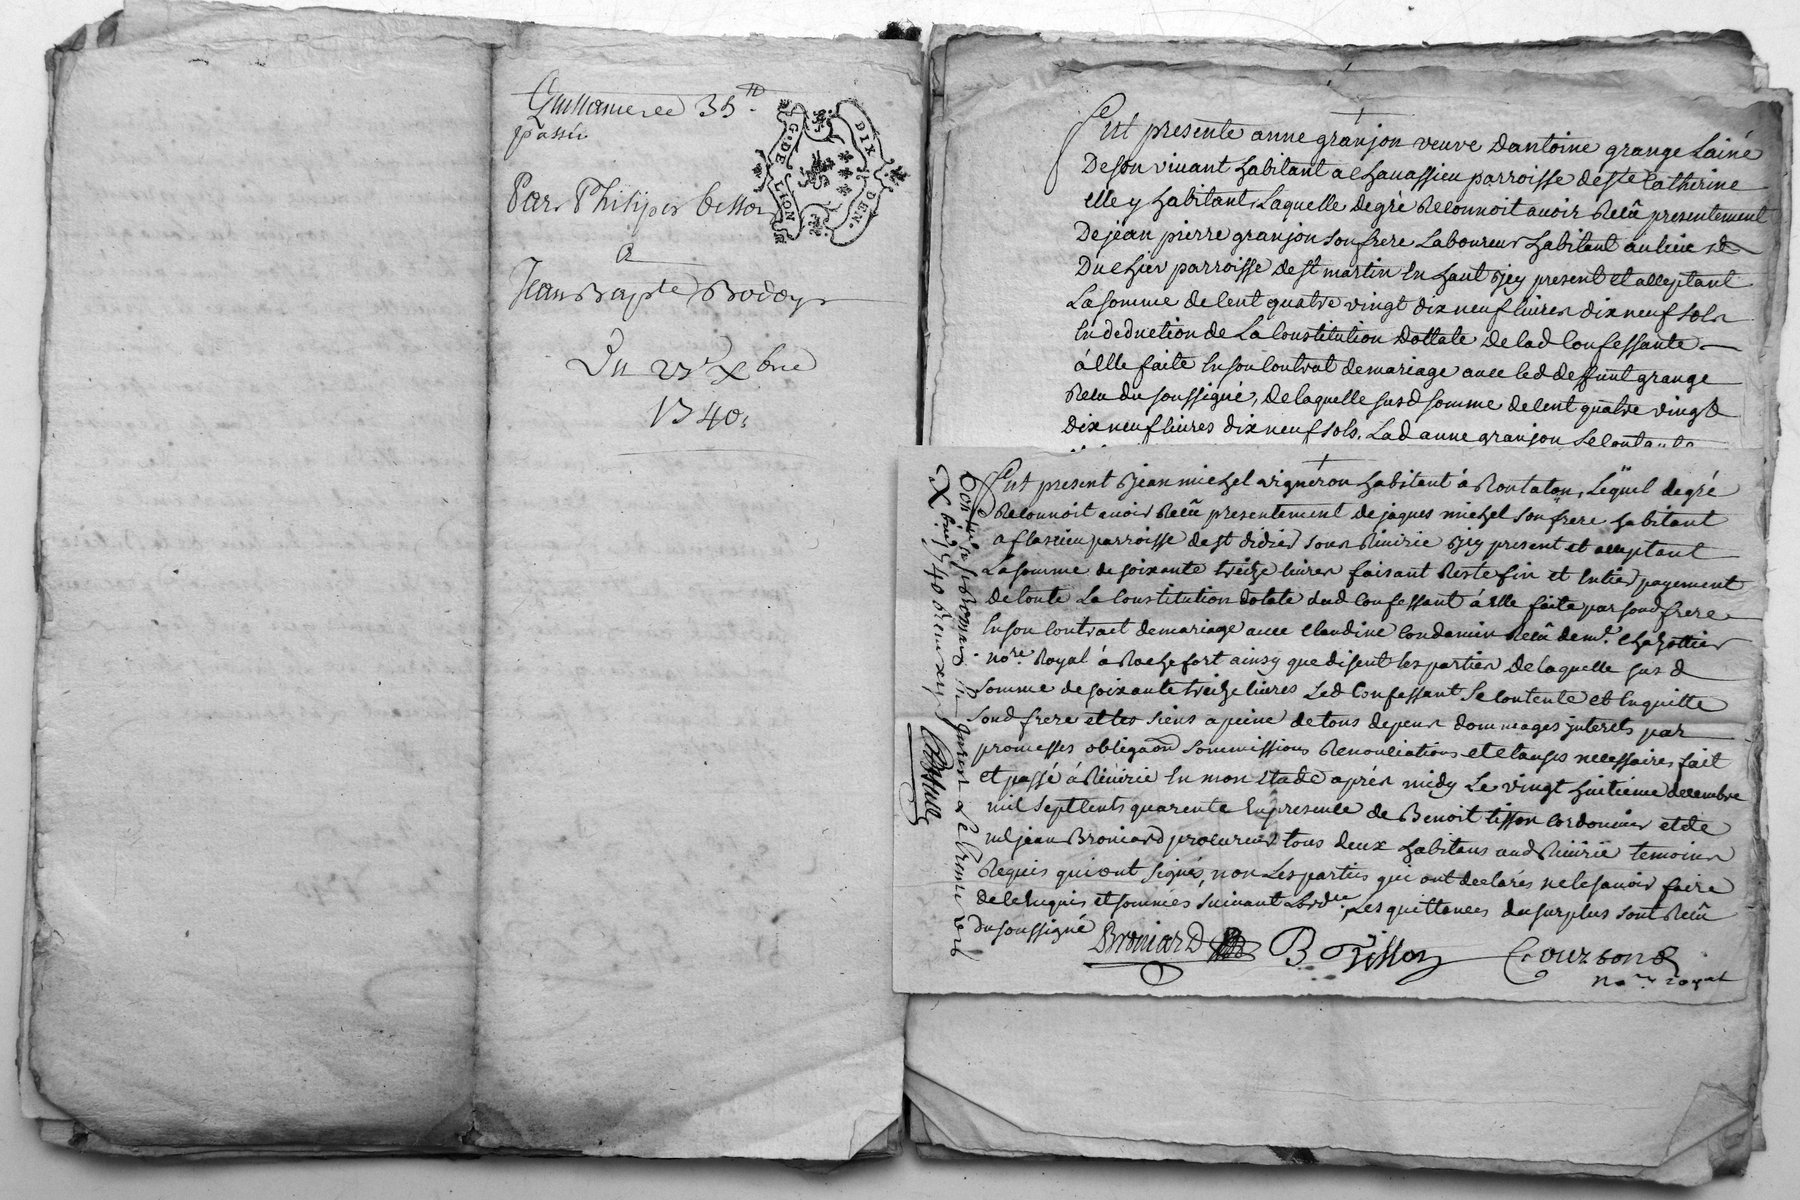 Quittance de 35 tt
passée
Par Philiper besson
G. DE LION
DIX DEN.
a
Jean Bapte Bodoy
Du 23e Xbre
1740
Fut presente anne granjon veuve Dantoine grange Lainé
De son vivant habitant a Chavassieu parroisse de ste Catherine
elle y habitant, Laquelle de gré Reconnoit avoir Reçû presentement
De jean pierre granjon son frere Laboureur habitant au lieu
Du parroisse de st martin En haut Jcy present et acceptant
La somme de Cent quatre vingt dix neuf livres dix neuf sols
En deduction de La Constitution Dottale De lad Confessante
á Elle faite En son Contrat de mariage avec led deffunt grange
Recu du soussigné, De laquelle susd somme de Cent quatre vingt
Dix neuf livres dix neuf sols, Lad anne granjon se Contante
Fut present Jean michel vigneron habitant á Rontalon, Lequel de gré
Reconnoit avoir Reçû presentement De jaques michel son frere habitant
a flassieu parroisse de st didier sous Riverie Jcy present et acceptant
La somme de soixante treize livres faisant Reste fin et Entier payement
de toute La Constitution dotale dud Confessant á Elle faite par sond frere
En son Contract de mariage avec Claudine Condamin Reçû de me. Chazottier
nore. Royal á Rochefort ainsy que disent les parties De laquelle susd
somme de soixante treize livres Led Confessant se Contente et En quitte
sond frere et les siens a peine de tous depens dommages jnterets par
promesses obligaon sommissions Renonciations et clauses necessaires fait
et passé á Riverie En mon Etude aprés midy Le vingt huitieme decembre
mil sept Cents quarente En presence de Benoit tisson Cordonnier et de
me jean Broniard procureur tous deux habitans aud Riverie temoins
Requis qui ont signés, non Les parties qui ont declarés ne le sçavoir faire
de ce Enquis et sommés suivant Lordce. Les quittances du surplus sont Reçû
Du soussigné
Broniard
B Tisson
Courbon
nore royal